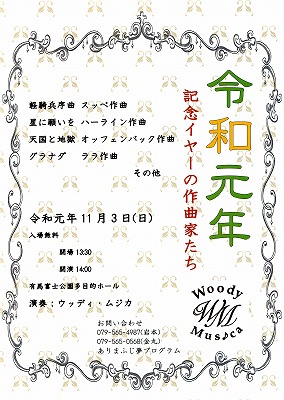 令和元年
記念イヤーの作曲家たち
軽騎兵序曲 スッペ作曲
星に願いを ハーライン作曲
天国と地獄 オッフェンバック作曲
グラナダ ララ作曲
その他
令和元年11月3日(日)
入場無料
開場 13:30
開演 14:00
有馬富士公園多目的ホール
演奏：ウッディ・ムジカ
お問い合わせ
079-565-4987(岩本)
079-565-0568(金丸)
ありまふじ夢プログラム
Woody
WM
Musica